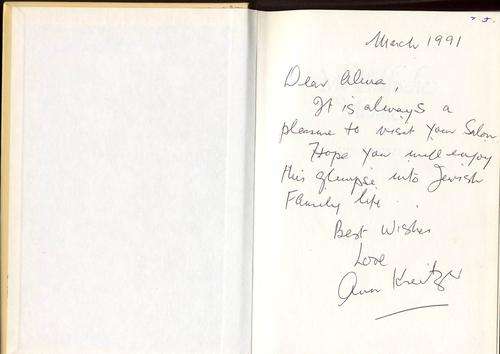 March 1991
Dear Alma,
It is always a
pleasure to visit your Salon
Hope you will enjoy
this glimpse into Jewish
Family life . .
Best Wishes
Love
Ann Kreitzer